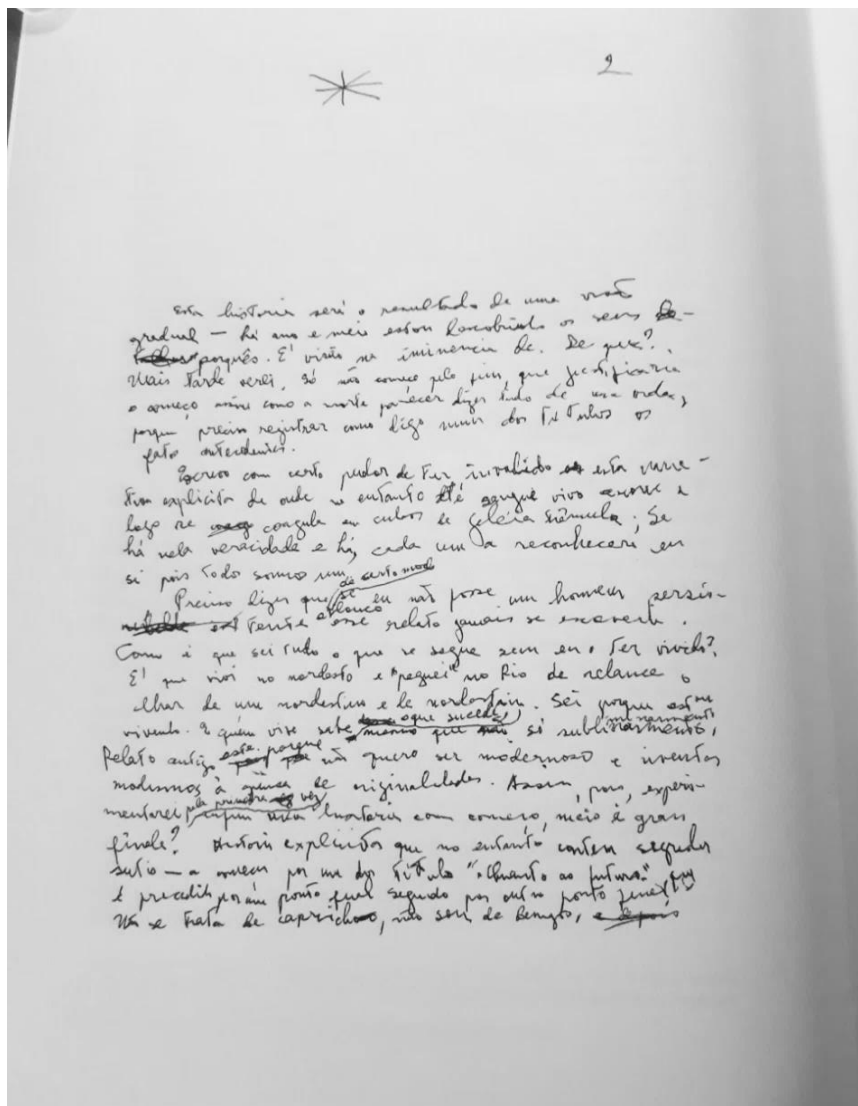 2
Esta historia será o resultado de uma visão
gradual — há ano e meio estou descobrindo os seus de-
talhes porquês. E' visão na iminencia de. De que?
Mais tarde verei. Só não começo pelo fim, que justificaria
o começo assim como a morte parecer dizer tudo de uma,
porque preciso registrar como digo num dos titulos os
fatos antecedentes.
Escrevo com certo pudor de ter invalido esta narra-
tiva explicita de onde no entanto até sangue vivo escorre e
logo se coagula em cubos de geléia trêmula; Se
há nela veracidade e há, cada um a reconhecerá em
si pois todos somos um
de certo modo
Preciso dizer que se eu não fosse um homem persis-
tente e louco esse relato jamais se escreveria.
Como é que sei tudo o que se segue sem eu o ter vivido?
E' que vivi no nordeste e "peguei" no Rio de relance o
olhar de um nordestino e de nordestina. Sei porque estou
vivendo. E quem vive sabe o que sucede, mesmo que só subliminarmente,
Relato antigo este porque não quero ser modernoso e inventar
modismos à guisa de originalidades. Assim, pois, experi-
mentarei pela primeira vez uma historia com começo, meio e gran
finale? Historia explicita que no entanto contem segredos
sutis — a começar por um dos titulos "Quanto ao futuro."
é precedido por um ponto final seguido por outro ponto final
Não se trata de capricho, não sou de